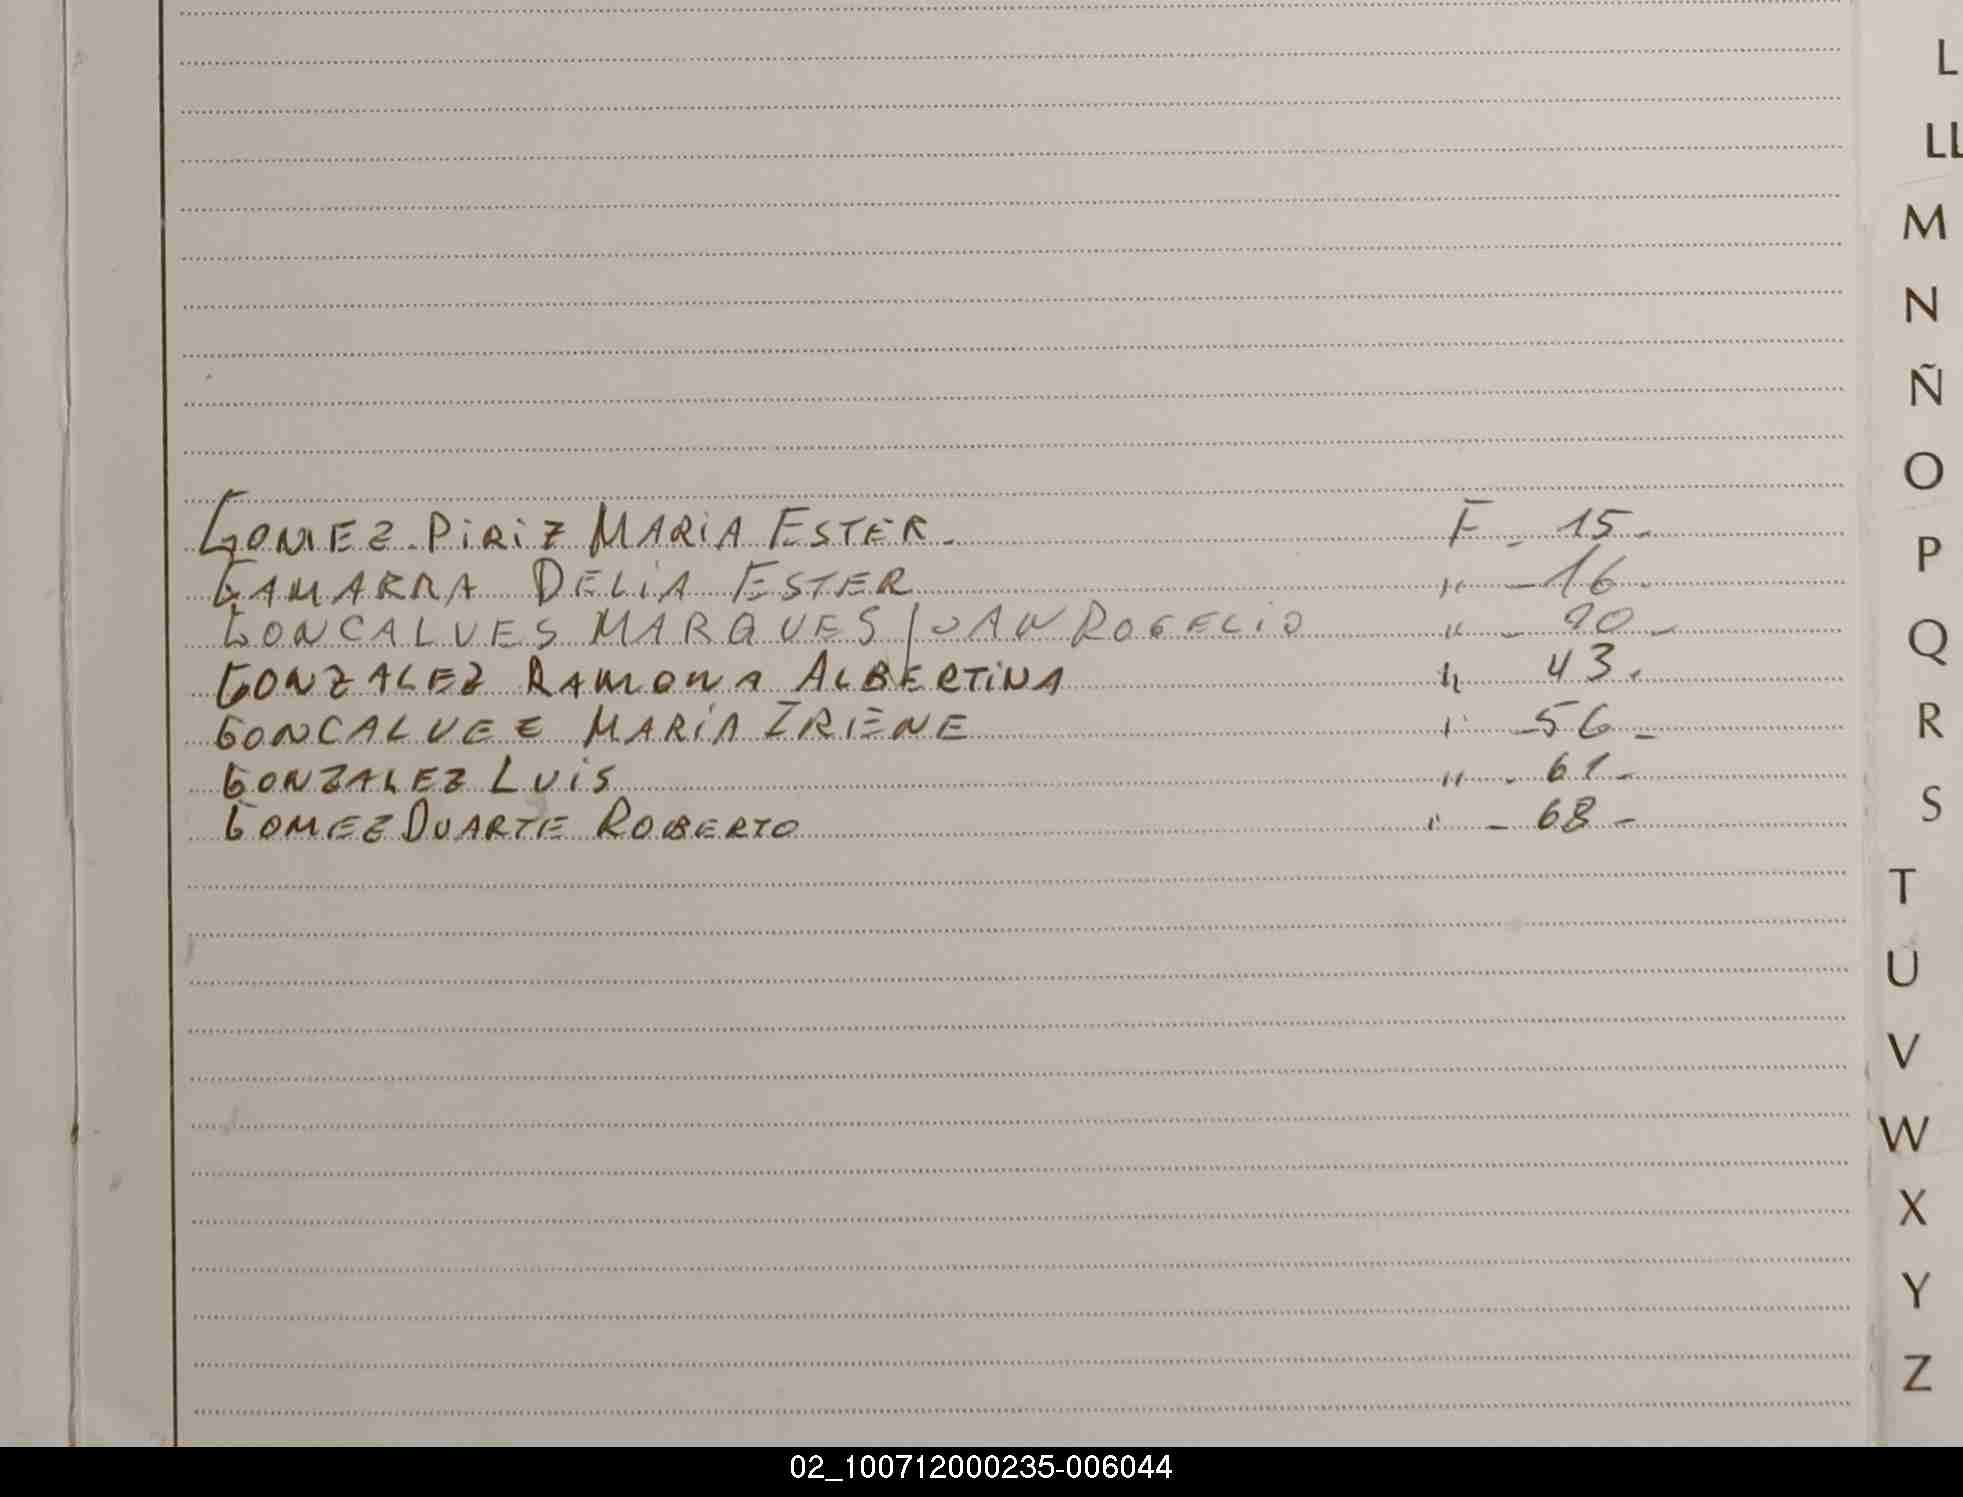 GOMEZ-PIRIZ MARIA ESTER. F - 15 -
GAMARRA DELIA ESTER " - 16 -
GONCALVES MARQUES JUAN ROGELIO " - 20 -
GONZALEZ RAMONA ALBERTINA " 43 -
GONCALVEZ MARÍA IRIENE " - 56 -
GONZALEZ LUIS " - 61 -
GOMEZ DUARTE ROBERTO " - 68 -
L
LL
M
N
Ñ
O
P
Q
R
S
T
U
V
W
X
Y
Z
02_100712000235-006044